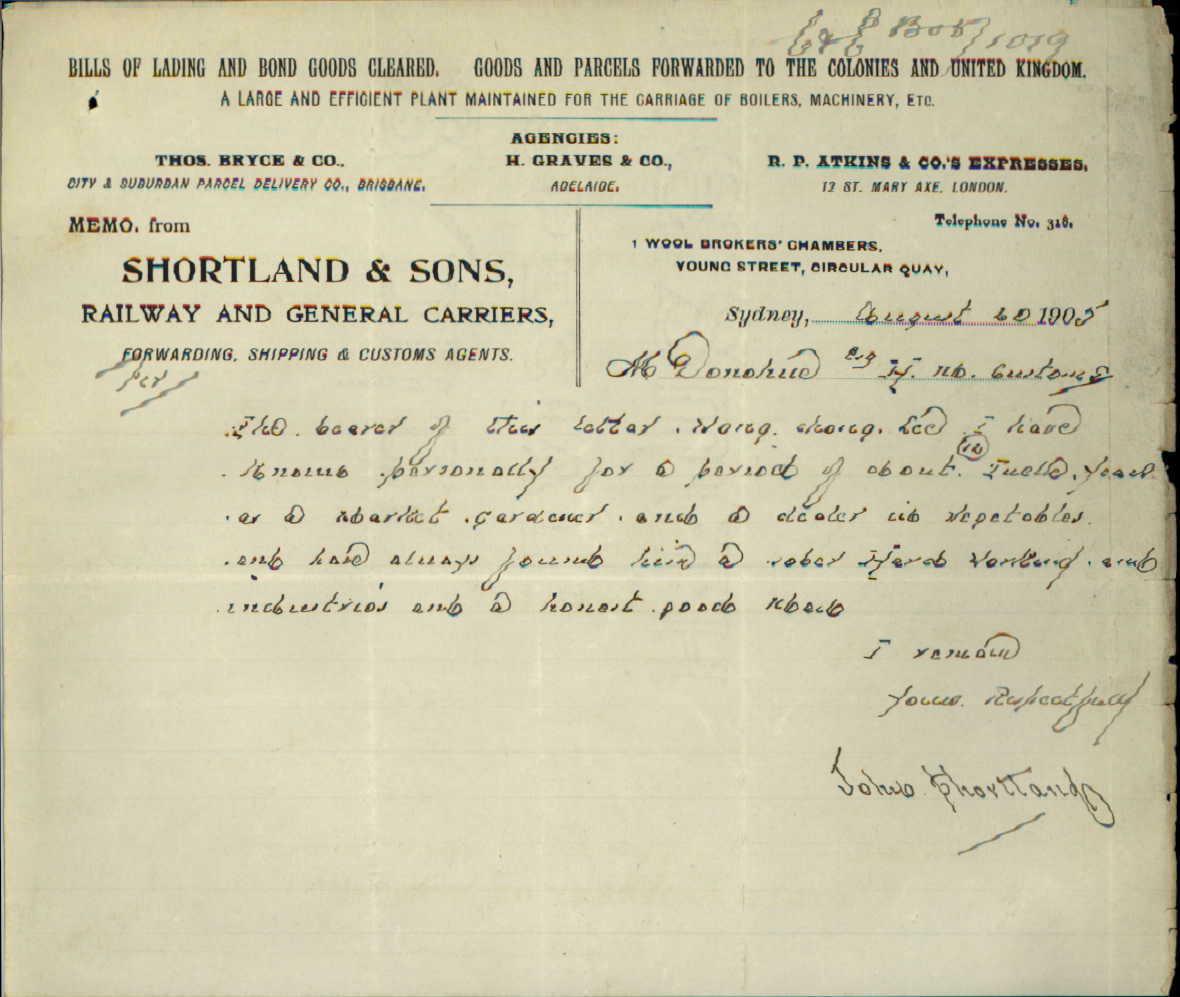 BILLS OF LADING AND BOND GOODS CLEARED. GOODS AND PARCELS FORWARDED TO THE COLONIES AND UNITED KINGDOM.
A LARGE AND EFFICIENT PLANT MAINTAINED FOR THE CARRIAGE OF BOILERS, MACHINERY, ETC.
AGENCIES:
THOS. BRYCE & CO., H. GRAVES & CO., R. P. ATKINS & CO.'S EXPRESSES,
CITY & SUBURBAN PARCEL DELIVERY CO., BRISBANE. ADELAIDE. 12 ST. MARY AXE. LONDON.
MEMO. from
Telephone No. 318.
1 WOOL BROKERS' CHAMBERS,
YOUNG STREET, CIRCULAR QUAY,
SHORTLAND & SONS,
RAILWAY AND GENERAL CARRIERS,
FORWARDING, SHIPPING & CUSTOMS AGENTS.
Sydney, August 20 1905
Donohue Esq H. M. Customs
The bearer of this letter. Wong. Chong. Lee I have
Known personally for a period of about. Twelve (12) years
as a Market Gardener. and a dealer in vegetables.
and have always found him a sober Hard Working. and
industrios and a honest good Man
I remain
yours. Respectfully
John Shortland